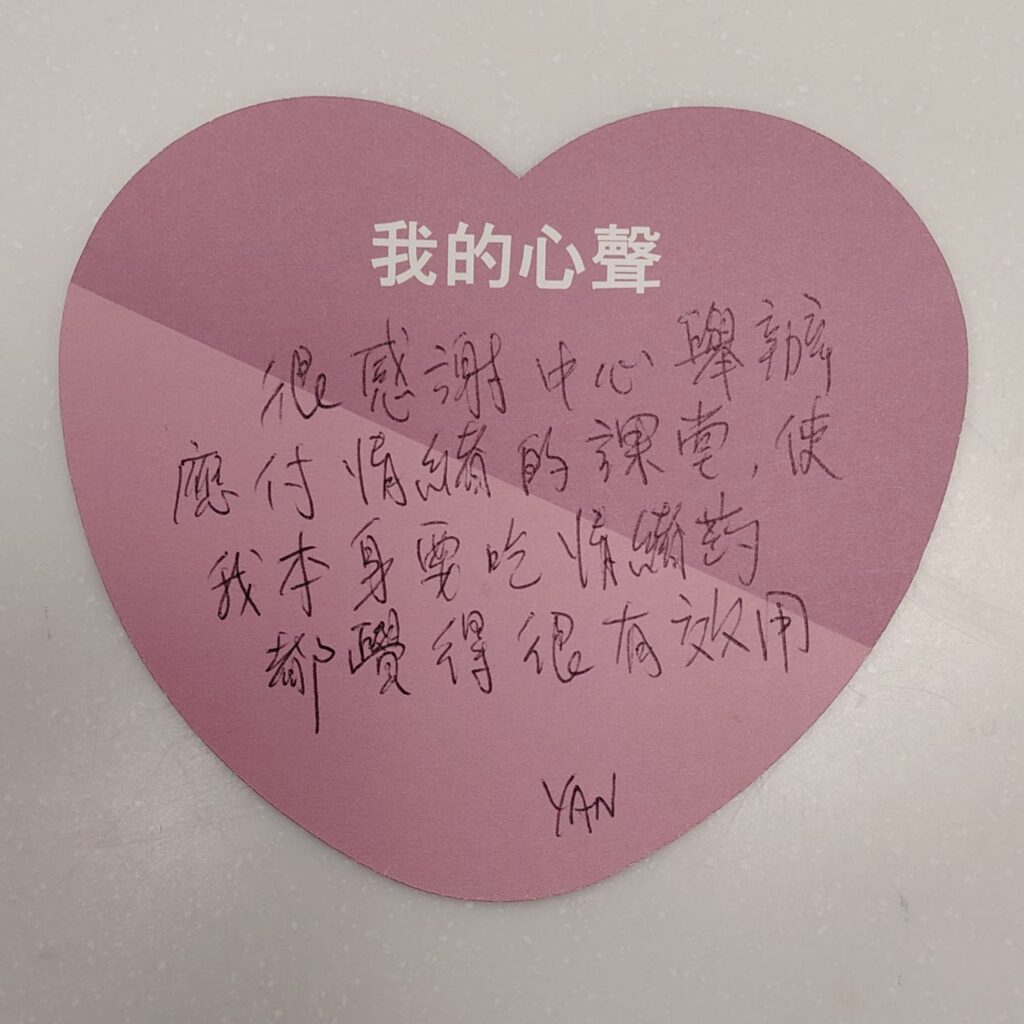 我的心聲
很感謝中心舉辦
應付情緒的課堂，使
我本身要吃情緒药
都覺得很有效用
YAN